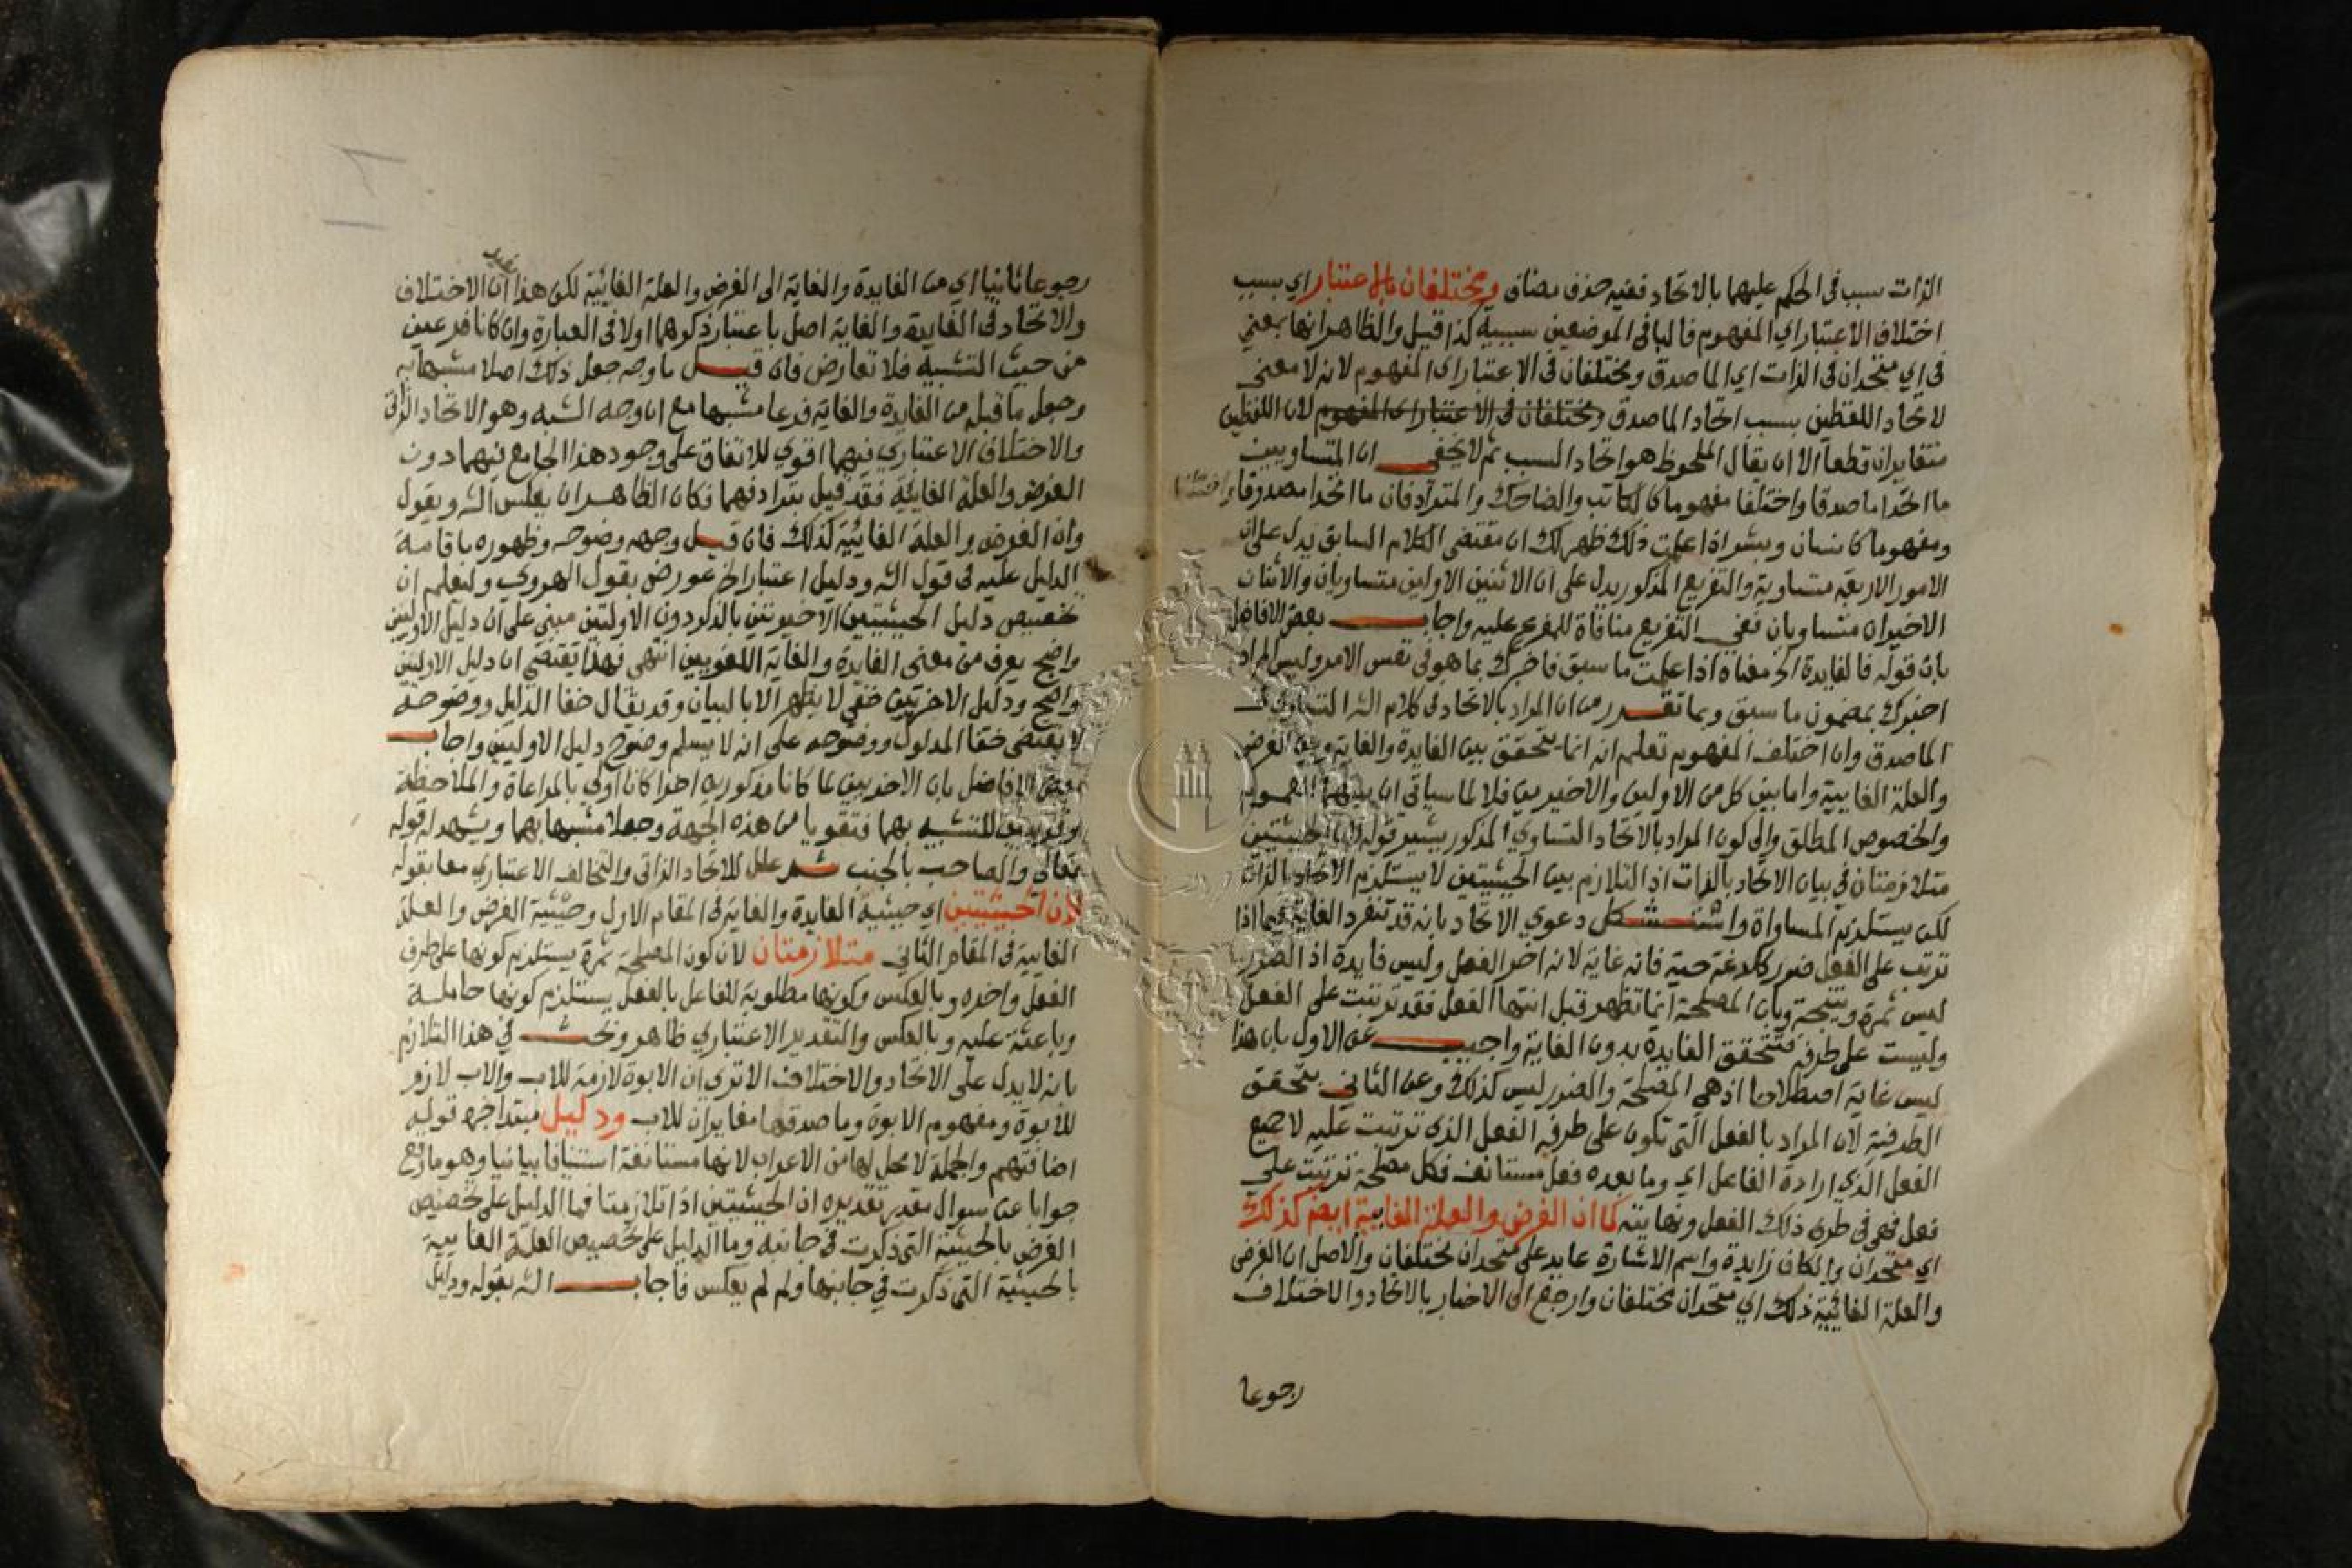 الذات سبب في الحكم عليهما بالاتحاد ففيه حذف مضاف ويختلفان بالاعتبار اي بسبب
اختلاف الاعتبار اي المفهوم فالبا في الموضعين سببية كذا قيل والظاهر انها بمعني
في اي متحدان في الذات اي الماصدق ومختلفان في الاعتبار اي المفهوم لانه لا معني
لاتحاد اللفظين بسبب اتحاد الماصدق ومختلفان في الاعتبار اي المفهوم لان اللفظين
متغايران قطعا الا ان يقال الملحوظ هو اتحاد السبب ثم لا يخفي ان المتساويين
ما اتحدا ماصدقا واختلفا مفهوما كالكاتب والضاحك والمترادفان ما اتحدا مصدوقا
ومفهوما كانسان وبشر اذا علمت ذلك ظهر لك ان مقتضي الكلام السابق يدل على ان
الامور الاربعة متساوية والتفريع المذكور يدل على ان الاثنين الاولين متساويان والاثنان
الاخيران متساويان ففي التفريع منافاة للمفرع عليه واجاب بعض الافاضل
بان قوله فالفايدة الخ معناه اذا علمت ما سبق فاخبرك بما هو في نفس الامر وليس المراد
اخبرك بمضمون ما سبق وبما تقرر من ان المراد بالاتحاد في كلام الش التساوي في
الماصدق وان اختلف المفهوم تعلم انه انما يتحقق بين الفايدة والغاية وبين الغرض
والعلة الغايية واما بين كل من الاولين والاخيرين فلا لما سياتي ان بينهما العموم
والخصوص المطلق والي كون المراد بالاتحاد التساوي المذكور يشير قوله لان الحيثيتين
متلازمتان في بيان الاتحاد بالذات اذ التلازم بين الحيثيتين لا يستلزم الاتحاد بالذات
لكن يستلزم المساواة واستشكل دعوي الاتحاد بانه قد تنفرد الغاية فيما اذا
ترتب على الفعل ضرر كلدغة حية فانه غاية لانه اخر الفعل وليس فايدة اذ الضرر
ليس ثمرة ونتيجة وبان المصلحة انما تظهر قبل انتها الفعل فقد ترتبت على الفعل
وليست على طرفه فتتحقق الفايدة بدون الغاية واجيب عن الاول بان هذا
ليس غاية اصطلاحا اذ هي المصلحة والضرر ليس كذلك وعن الثاني بتحقق
الطرفية لان المراد بالفعل التي تكون على طرفه الفعل الذي ترتبت عليه لا جميع
الفعل الذي اراده الفاعل اي وما بعده فعل مستانف فكل مصلحة ترتبت على
فعل فهي في طرف ذلك الفعل ونهايته كما ان الغرض والعلة الغايية ايضا كذلك
اي متحدان والكاف زايدة واسم الاشارة عايد على متحدان مختلفان والاصل ان الغرض
والعلة الغائية ذلك اي متحدان مختلفان وارجع الي الاخبار بالاتحاد والاختلاف
رجوعا
رجوعا ثانيا اي من الفايدة والغاية الى الغرض والعلة الغائية لكن هذا يفيد ان الاختلاف
والاتحاد في الفايدة والغاية اصل باعتبار ذكرهما اولا في العبارة وان كانا فرعين
من حيث التشبيه فلا تعارض فان قيل ما وجه جعل ذلك اصلا مشبها به
وجعل ما قبله من الفايدة والغاية فرعا مشبها مع ان وجه الشبه وهو الاتحاد الذاتي
والاختلاف الاعتباري فيهما اقوي للاتفاق على وجود هذا الجامع فيهما دون
الغرض والعلة الغائية فقد قيل بترادفهما فكان الظاهر ان يعكس الش ويقول
وان الغرض والعلة الغائية كذلك فان قيل وجهه وضوحه وظهوره باقامة
الدليل عليه في قول الش ودليل اعتبار الخ عورض بقول الهروي ولتعلم ان
تخصيص دليل الحيثيتين الاخيرتين بالذكر دون الاولتين مبني على ان دليل الاوليين
واضح يعرف من معني الفايدة والغاية اللغويين انتهي فهذا يقتضي ان دليل الاوليين
واضح ودليل الاخريين خفي لا يظهر الا بالبيان وقد يقال خفا الدليل ووضوحه
لا يقتضي خفا المدلول ووضوحه على انه لا يسلم وضوح دليل الاوليين واجاب
بعض الافاضل بان الاخريين لما كانا مذكورين اخرا كانا اولي بالمراعاة والملاحظة
للتشبيه بهما فتقويا من هذه الجهة وجعلا مشبها بهما ويشهد له قوله
تعالى والصاحب بالجنب ثم علل للاتحاد الذاتي والتخالف الاعتباري معا بقوله
لان الحيثيتين اي حيثية الفايدة والغاية في المقام الاول وحيثية الغرض والعلة
الغايية في المقام الثاني متلازمتان لان كون المصلحة ثمرة يستلزم كونها على طرف
الفعل واخره وبالعكس وكونها مطلوبة للفاعل بالفعل يستلزم كونها حاملة
وباعثة عليه وبالعكس والتقدير الاعتباري ظاهر وبحث في هذا التلازم
بانه لا يدل على الاتحاد والاختلاف الا تري ان الابوة لازمة للاب والاب لازم
للابوة ومفهوم الابوة وماصدقها مغايران للاب ودليل مبتدا خبره قوله
اضافتهم والجملة لا محل لها من الاعراب لانها مستانفة استئنافا بيانيا وهو ما وقع
جوابا عن سوال مقدر تقديره ان الحيثيتين اذا تلازمتا فما الدليل على تخصيص
الغرض بالحيثية التي ذكرت في جانبه وما الدليل على تخصيص العلة الغايية
بالحيثية التي ذكرت في جانبها ولم لم يعكس فاجاب الش بقوله ودليل